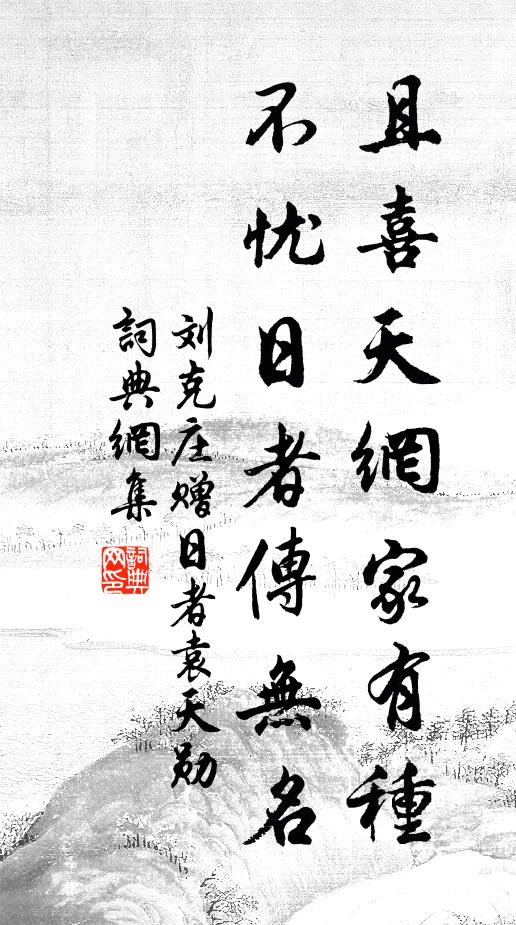 且喜天網家有種
不忧日者傳無名
刘克庄赠日者袁天勋
詞典網集
詞典
网印